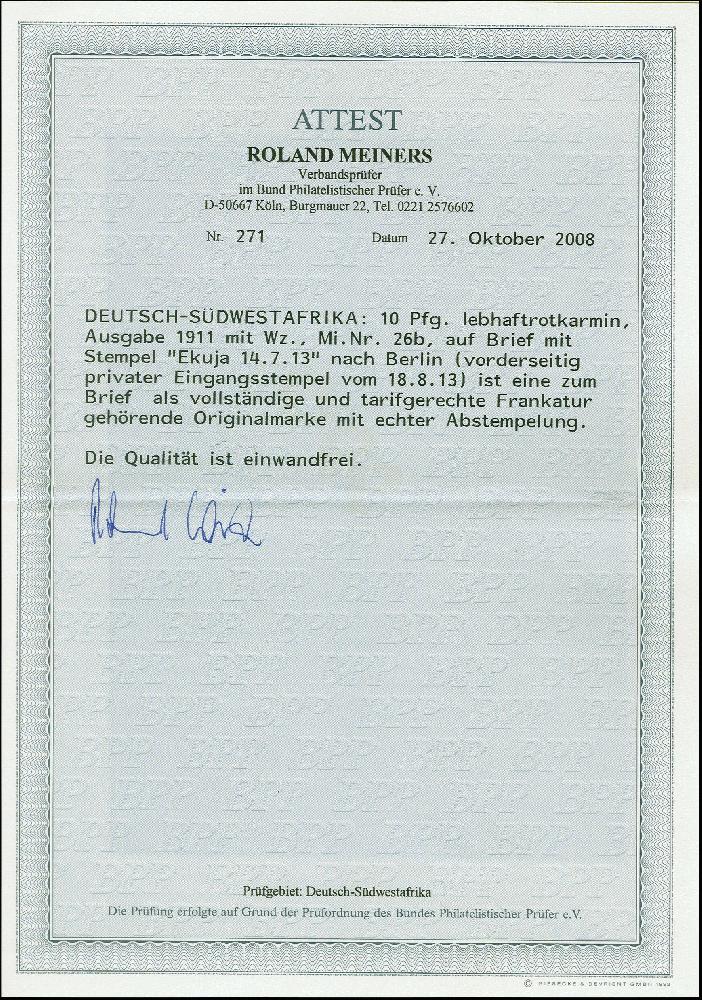 ATTEST
ROLAND MEINERS
Verbandsprüfer
im Bund Philatelistischer Prüfer e. V.
D-50667 Köln, Burgmauer 22, Tel. 0221 2576602
Nr. 271 Datum 27. Oktober 2008
DEUTSCH-SÜDWESTAFRIKA: 10 Pfg. lebhaftrotkarmin,
Ausgabe 1911 mit Wz., Mi.Nr. 26b, auf Brief mit
Stempel "Ekuja 14.7.13" nach Berlin (vorderseitig
privater Eingangsstempel vom 18.8.13) ist eine zum
Brief als vollständige und tarifgerechte Frankatur
gehörende Originalmarke mit echter Abstempelung.
Die Qualität ist einwandfrei.
Prüfgebiet: Deutsch-Südwestafrika
Die Prüfung erfolgte auf Grund der Prüfordnung des Bundes Philatelistischer Prüfer e.V.
© GIESECKE & DEVRIENT GMBH